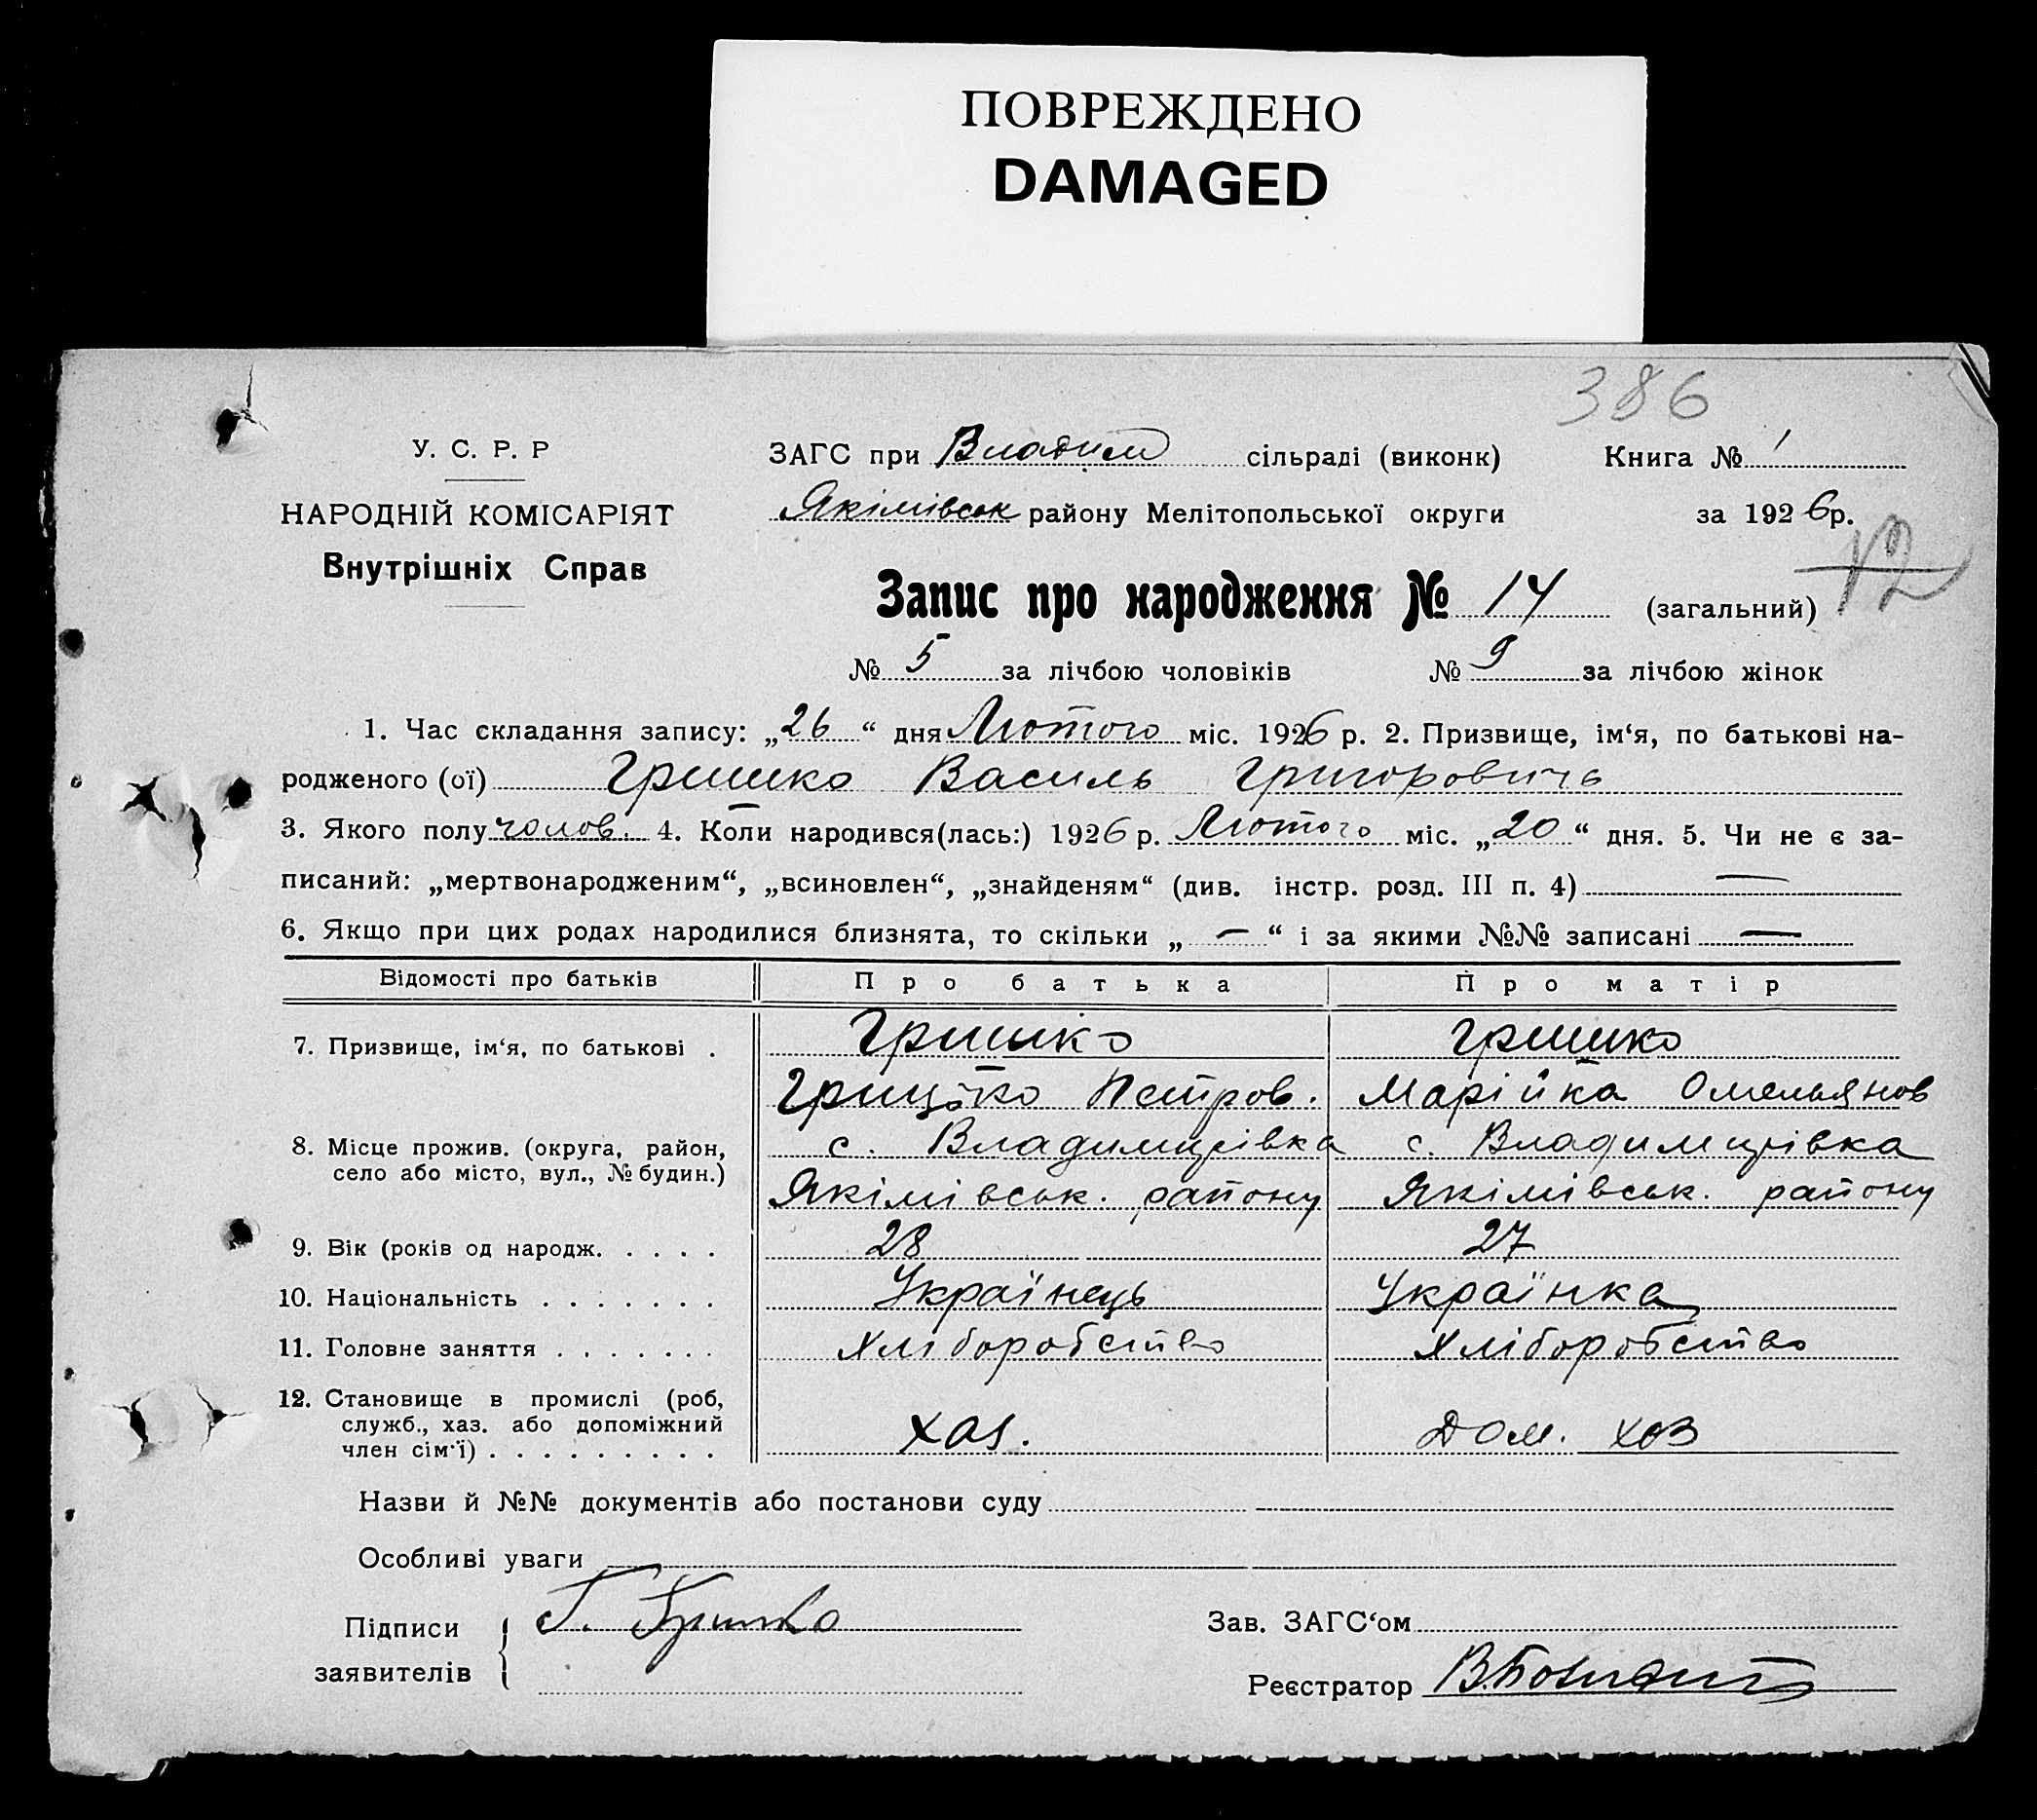 ПОВРЕЖДЕНО
DAMAGED
386
У. С. Р. Р
НАРОДНІЙ КОМІСАРІЯТ
Внутрішніх Справ
ЗАГС при Владим сільраді (виконк) Книга № 1
Якімівськ району Мелітопольської округи за 1926 р.
12
Запис про народження № 14 (загальний)
№ 5 за лічбою чоловіків № 9 за лічбою жінок
1. Час складання запису: „26“ дня Лютого міс. 1926 р. 2. Призвище, ім‘я, по батькові на-
родженого (ої) Гришко Василь Григоровичь
3. Якого полу чолов. 4. Коли народився(лась:) 1926 р. Лютого міс. „20“ дня. 5. Чи не є за-
писаний: „мертвонародженим“, „всиновлен“, „знайденям“ (див. інстр. розд. III п. 4) —
6. Якщо при цих родах народилися близнята, то скільки „ — “ і за якими №№ записані —
Відомості про батьків Про батька Про матір
7. Призвище, ім‘я, по батькові . Гришко Гришко
Грицько Петров. Марійка Омельянов
8. Місце прожив. (округа, район, с. Владимирівка с. Владимирівка
село або місто, вул., № будин.)
Якімівськ. району Якімівськ. району
9. Вік (років од народж. . . . . 28 27
10. Національність . . . . . . . Українець Українка
11. Головне заняття . . . . . . . Хліборобство Хліборобство
12. Становище в промислі (роб,
служб., хаз. або допоміжний
член сім‘ї) . . . . . . . . . хаз. дом. хоз
Назви й №№ документів або постанови суду
Особливі уваги
Підписи Г. Гришко Зав. ЗАГС‘ом
заявителів
Реєстратор